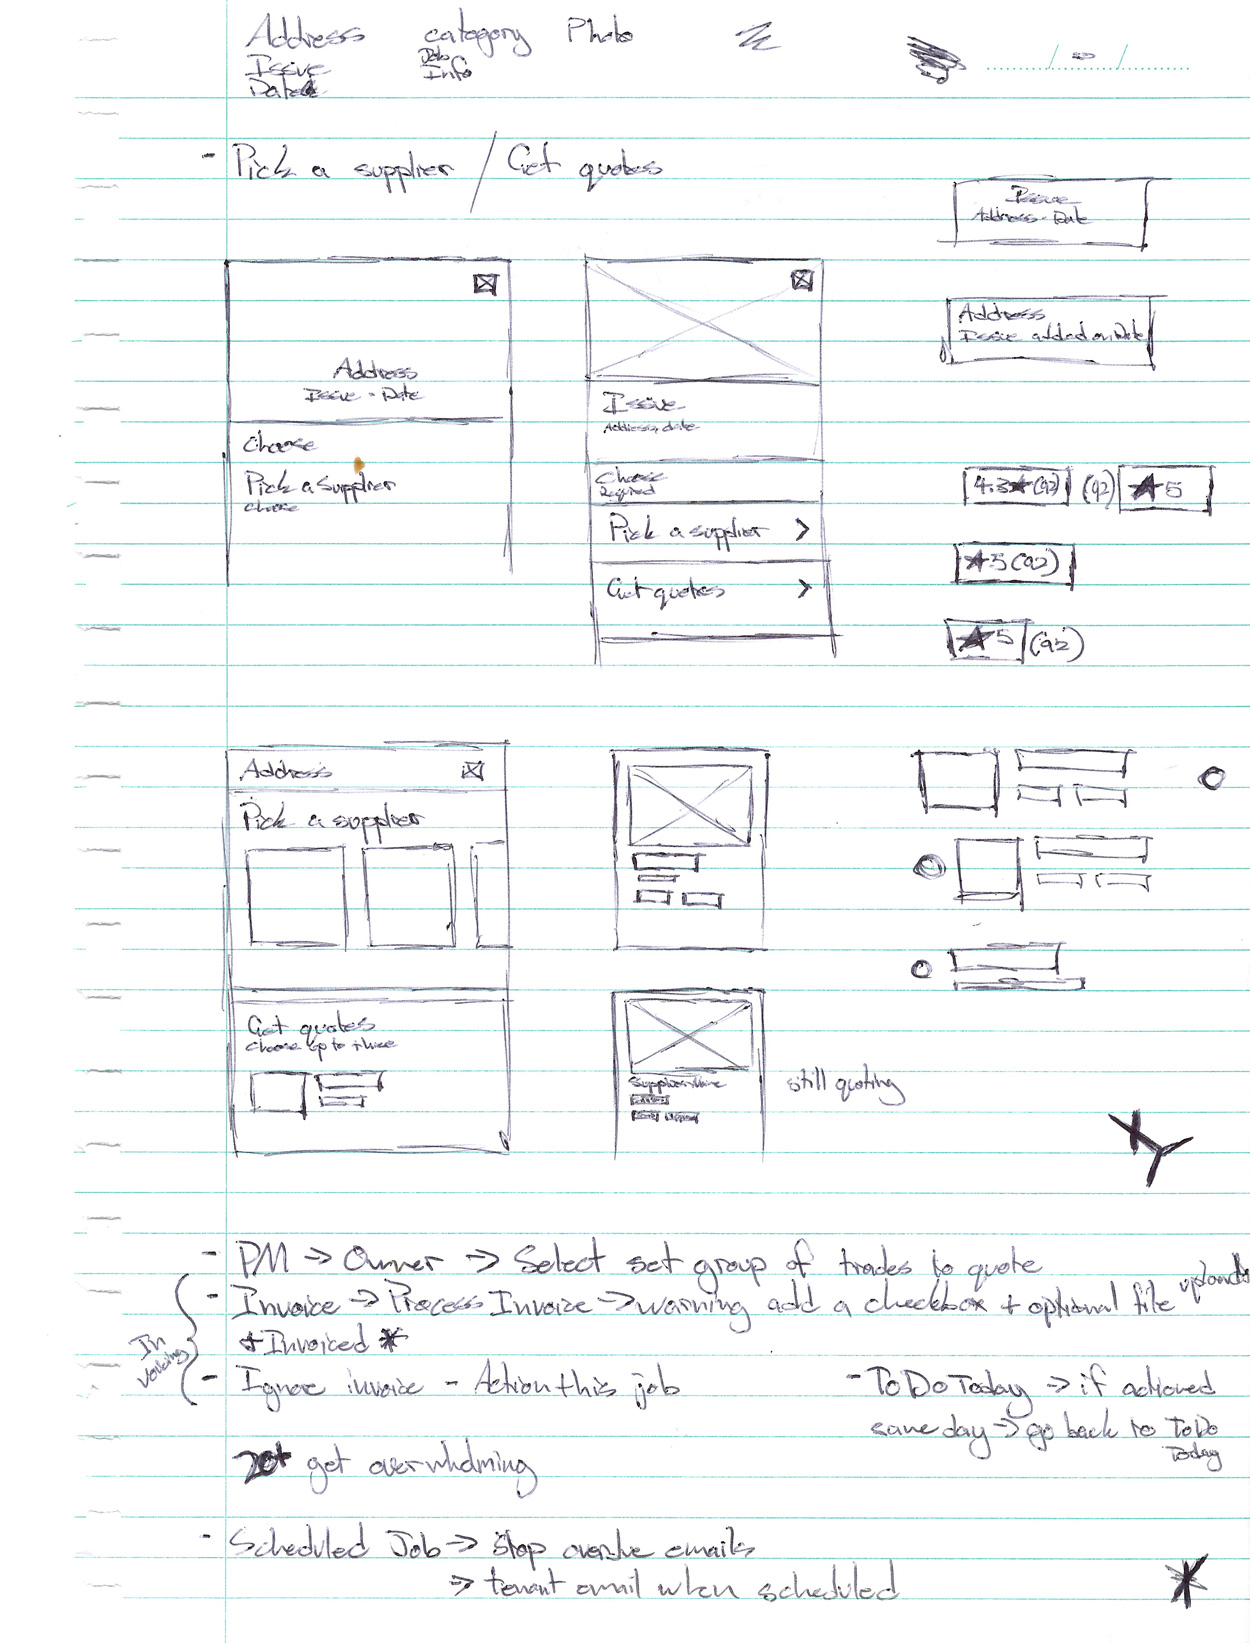 Address category Photo
Issue Job
Date Info
- Pick a supplier / Get quotes
Issue
Address - Date
Address
Issue added on Date
Address
Issue - Date
Choose
Pick a supplier
choose
Issue
Address, date
Choose
Required
Pick a supplier >
Get quotes >
4.3★(92) (92) ★5
★5(92)
★5 (92)
Address
Pick a supplier
Get quotes
Choose up to three
Supplier Name
still quoting
- PM → Owner → Select set group of trades to quote
- Invoice → Process Invoice → warning add a checkbox + optional file uploads
+ Invoiced *
Invoicing
- Ignore invoice - Action this job
- To Do Today → if actioned
same day → go back to ToDo
Today
20+ get overwhelming
- Scheduled Job → stop overdue emails
→ tenant email when scheduled